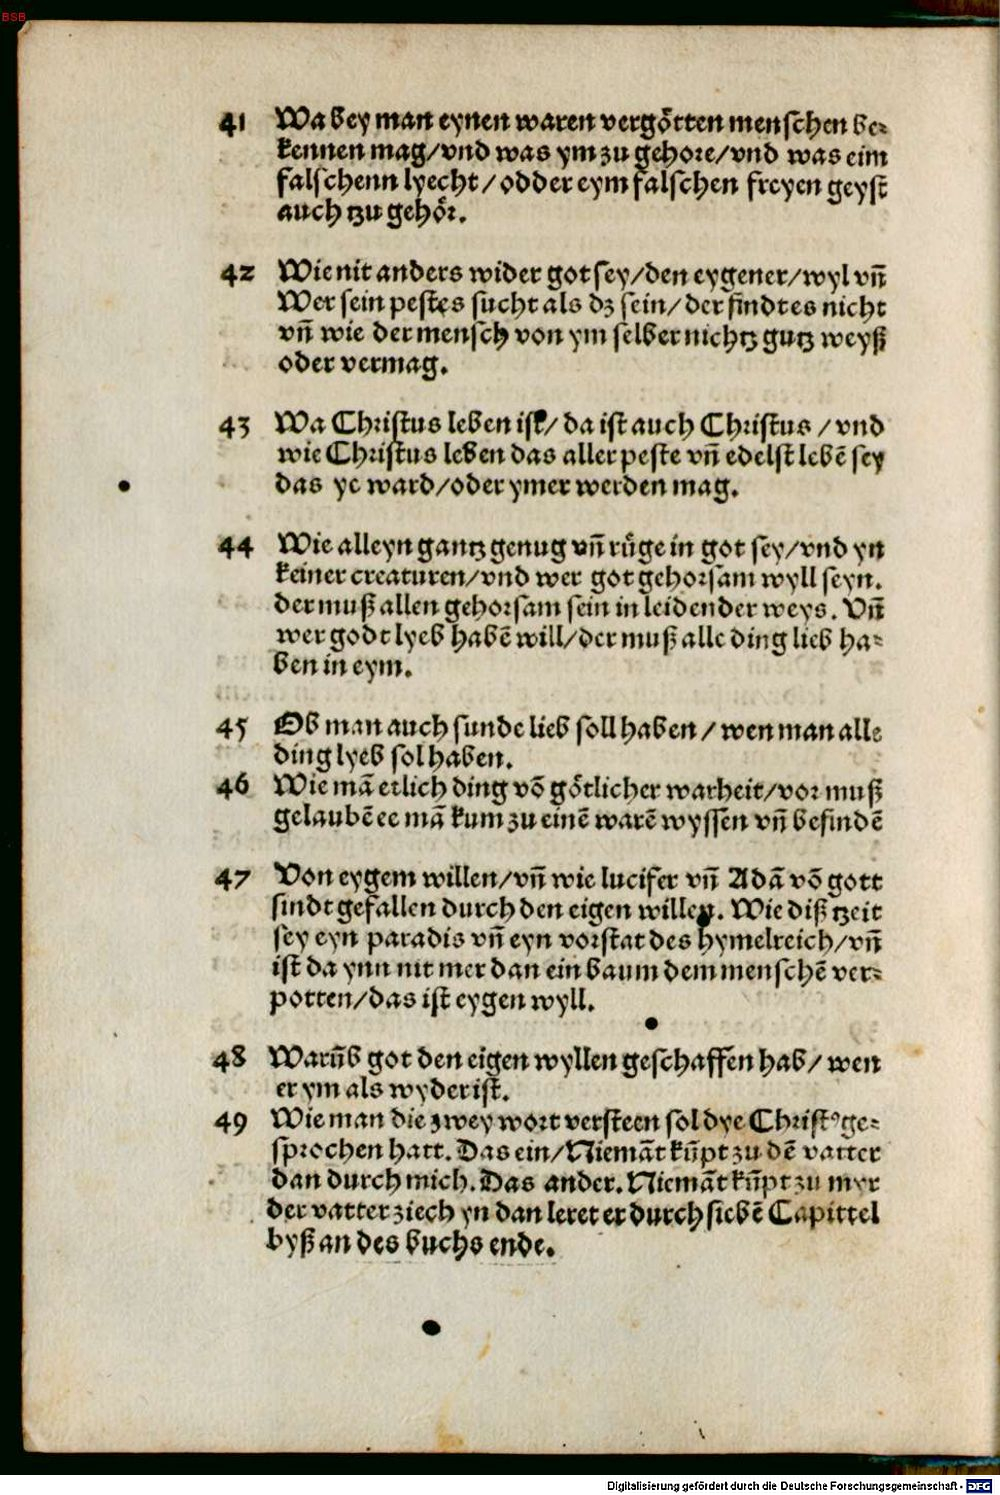 BSB
41 Wa bey man eynen waren vergötten menschen be⸗
kennen mag/vnd was ym zu gehore/vnd was eim
falschenn lyecht/odder eym falschen freyen geyst
auch tzu gehör.
42 Wie nit anders wider got sey/den eygener/wyl vñ
Wer sein pestes sucht als dz sein/der findt es nicht
vñ wie der mensch von ym selber nichtz gutz weyß
oder vermag.
43 Wa Christus leben ist/da ist auch Christus/vnd
wie Christus leben das aller peste vñ edelst lebē sey
das ye ward/oder ymer werden mag.
44 Wie alleyn gantz genug vñ rüge in got sey/vnd yn
keiner creaturen/vnd wer got gehorsam wyll seyn.
der muß allen gehorsam sein in leidender weys. Vñ
wer godt lyeb habē will/der muß alle ding lieb ha⸗
ben in eym.
45 Ob man auch sunde lieb soll haben/wen man alle
ding lyeb sol haben.
46 Wie mā etlich ding vō götlicher warheit/vor muß
gelaubē ee mā kum zu einē warē wyssen vñ befindē
47 Von eygem willen/vñ wie lucifer vñ Adā vō gott
sindt gefallen durch den eigen willen. Wie diß tzeit
sey eyn paradis vñ eyn vorstat des hymelreich/vñ
ist da ynn nit mer dan ein baum dem menschē ver⸗
potten/das ist eygen wyll.
48 Warūb got den eigen wyllen geschaffen hab/wen
er ym als wyder ist.
49 Wie man die zwey wort versteen sol dye Christꝰ ge⸗
sprochen hatt. Das ein/Niemāt kūpt zu dē vatter
dan durch mich. Das ander. Niemāt kūpt zu myr
der vatter ziech yn dan leret er durch siebē Capittel
byß an des buchs ende.
Digitalisierung gefördert durch die Deutsche Forschungsgemeinschaft - DFG